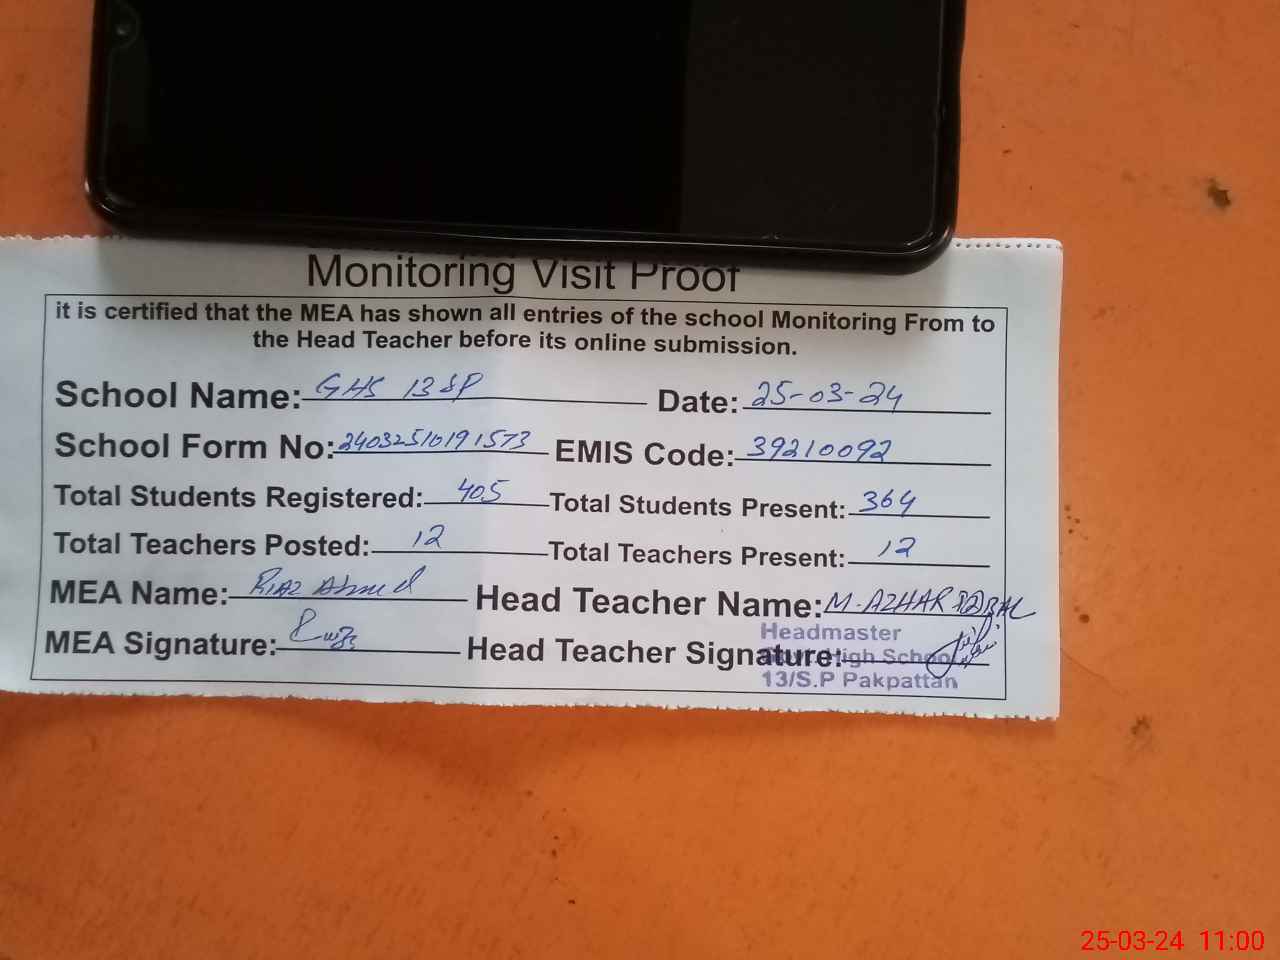 Monitoring Visit Proof
it is certified that the MEA has shown all entries of the school Monitoring From to
the Head Teacher before its online submission.
School Name: GHS 13 SP Date: 25-03-24
School Form No: 24032510191573 EMIS Code: 39210092
Total Students Registered: 405 Total Students Present: 364
Total Teachers Posted: 12 Total Teachers Present: 12
MEA Name: Riaz Ahmed Head Teacher Name: M. AZHAR IQBAL
MEA Signature: Head Teacher Signature:
Headmaster
Govt. High School
13/S.P Pakpattan
25-03-24 11:00